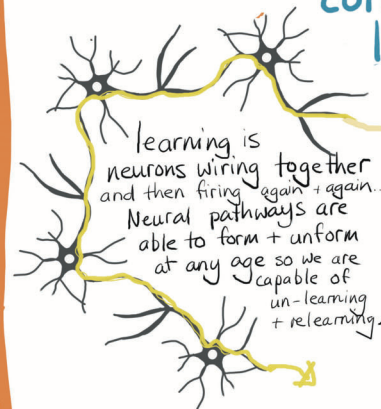 learning is
neurons wiring together
and then firing again + again...
Neural pathways are
able to form + unform
at any age so we are
capable of
un-learning
+ relearning.